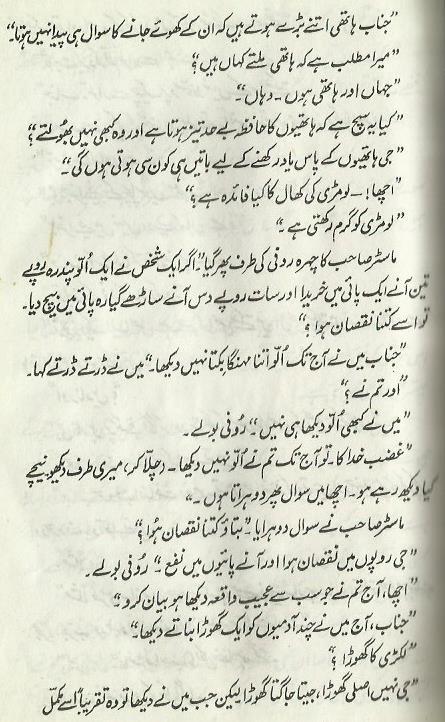 "جناب ہاتھی اتنے بڑے ہوتے ہیں کہ ان کے کھوئے جانے کا سوال ہی پیدا نہیں ہوتا۔"
"میرا مطلب ہے کہ ہاتھی ملتے کہاں ہیں؟"
"جہاں اور ہاتھی ہوں۔ وہاں۔"
"کیا یہ سچ ہے کہ ہاتھیوں کا حافظہ بے حد تیز ہوتا ہے اور وہ کبھی نہیں بھولتے؟"
"جی ہاتھیوں کے پاس یاد رکھنے کے لیے باتیں ہی کون سی ہوتی ہوں گی۔"
"اچھا!۔ لومڑی کی کھال کا کیا فائدہ ہے؟"
"لومڑی کو گرم رکھتی ہے۔"
ماسٹر صاحب کا چہرہ روفی کی طرف پھر گیا "اگر ایک شخص نے ایک الّو پندرہ روپے
تین آنے ایک پائی میں خریدا اور سات روپے دس آنے ساڑھے گیارہ پائی میں بیچ دیا۔
تو اسے کتنا نقصان ہوا؟"
"جناب میں نے آج تک الّو اتنا مہنگا بکتا نہیں دیکھا۔" میں نے ڈرتے ڈرتے کہا۔
"اور تم نے؟"
"میں نے کبھی الّو دیکھا ہی نہیں۔" رُوفی بولے۔
"غضب خدا کا۔ تو آج تک تم نے الّو نہیں دیکھا۔ (چلّا کر) میری طرف دیکھو نیچے
کیا دیکھ رہے ہو۔ اچھا میں سوال پھر دوہراتا ہوں۔"
ماسٹر صاحب نے سوال دوہرایا۔ "بتاؤ کتنا نقصان ہُوا؟"
"جی روپوں میں نقصان ہوا اور آنے پائیوں میں نفع۔" رُوفی بولے۔
"اچھا، آج تم نے جو سب سے عجیب واقعہ دیکھا ہو بیان کرو۔"
"جناب، آج میں نے چند آدمیوں کو ایک گھوڑا بناتے دیکھا۔"
"لکڑی کا گھوڑا؟"
"جی نہیں اصلی گھوڑا، جیتا جاگتا گھوڑا لیکن جب میں نے دیکھا تو وہ تقریباً اُسے مکمل